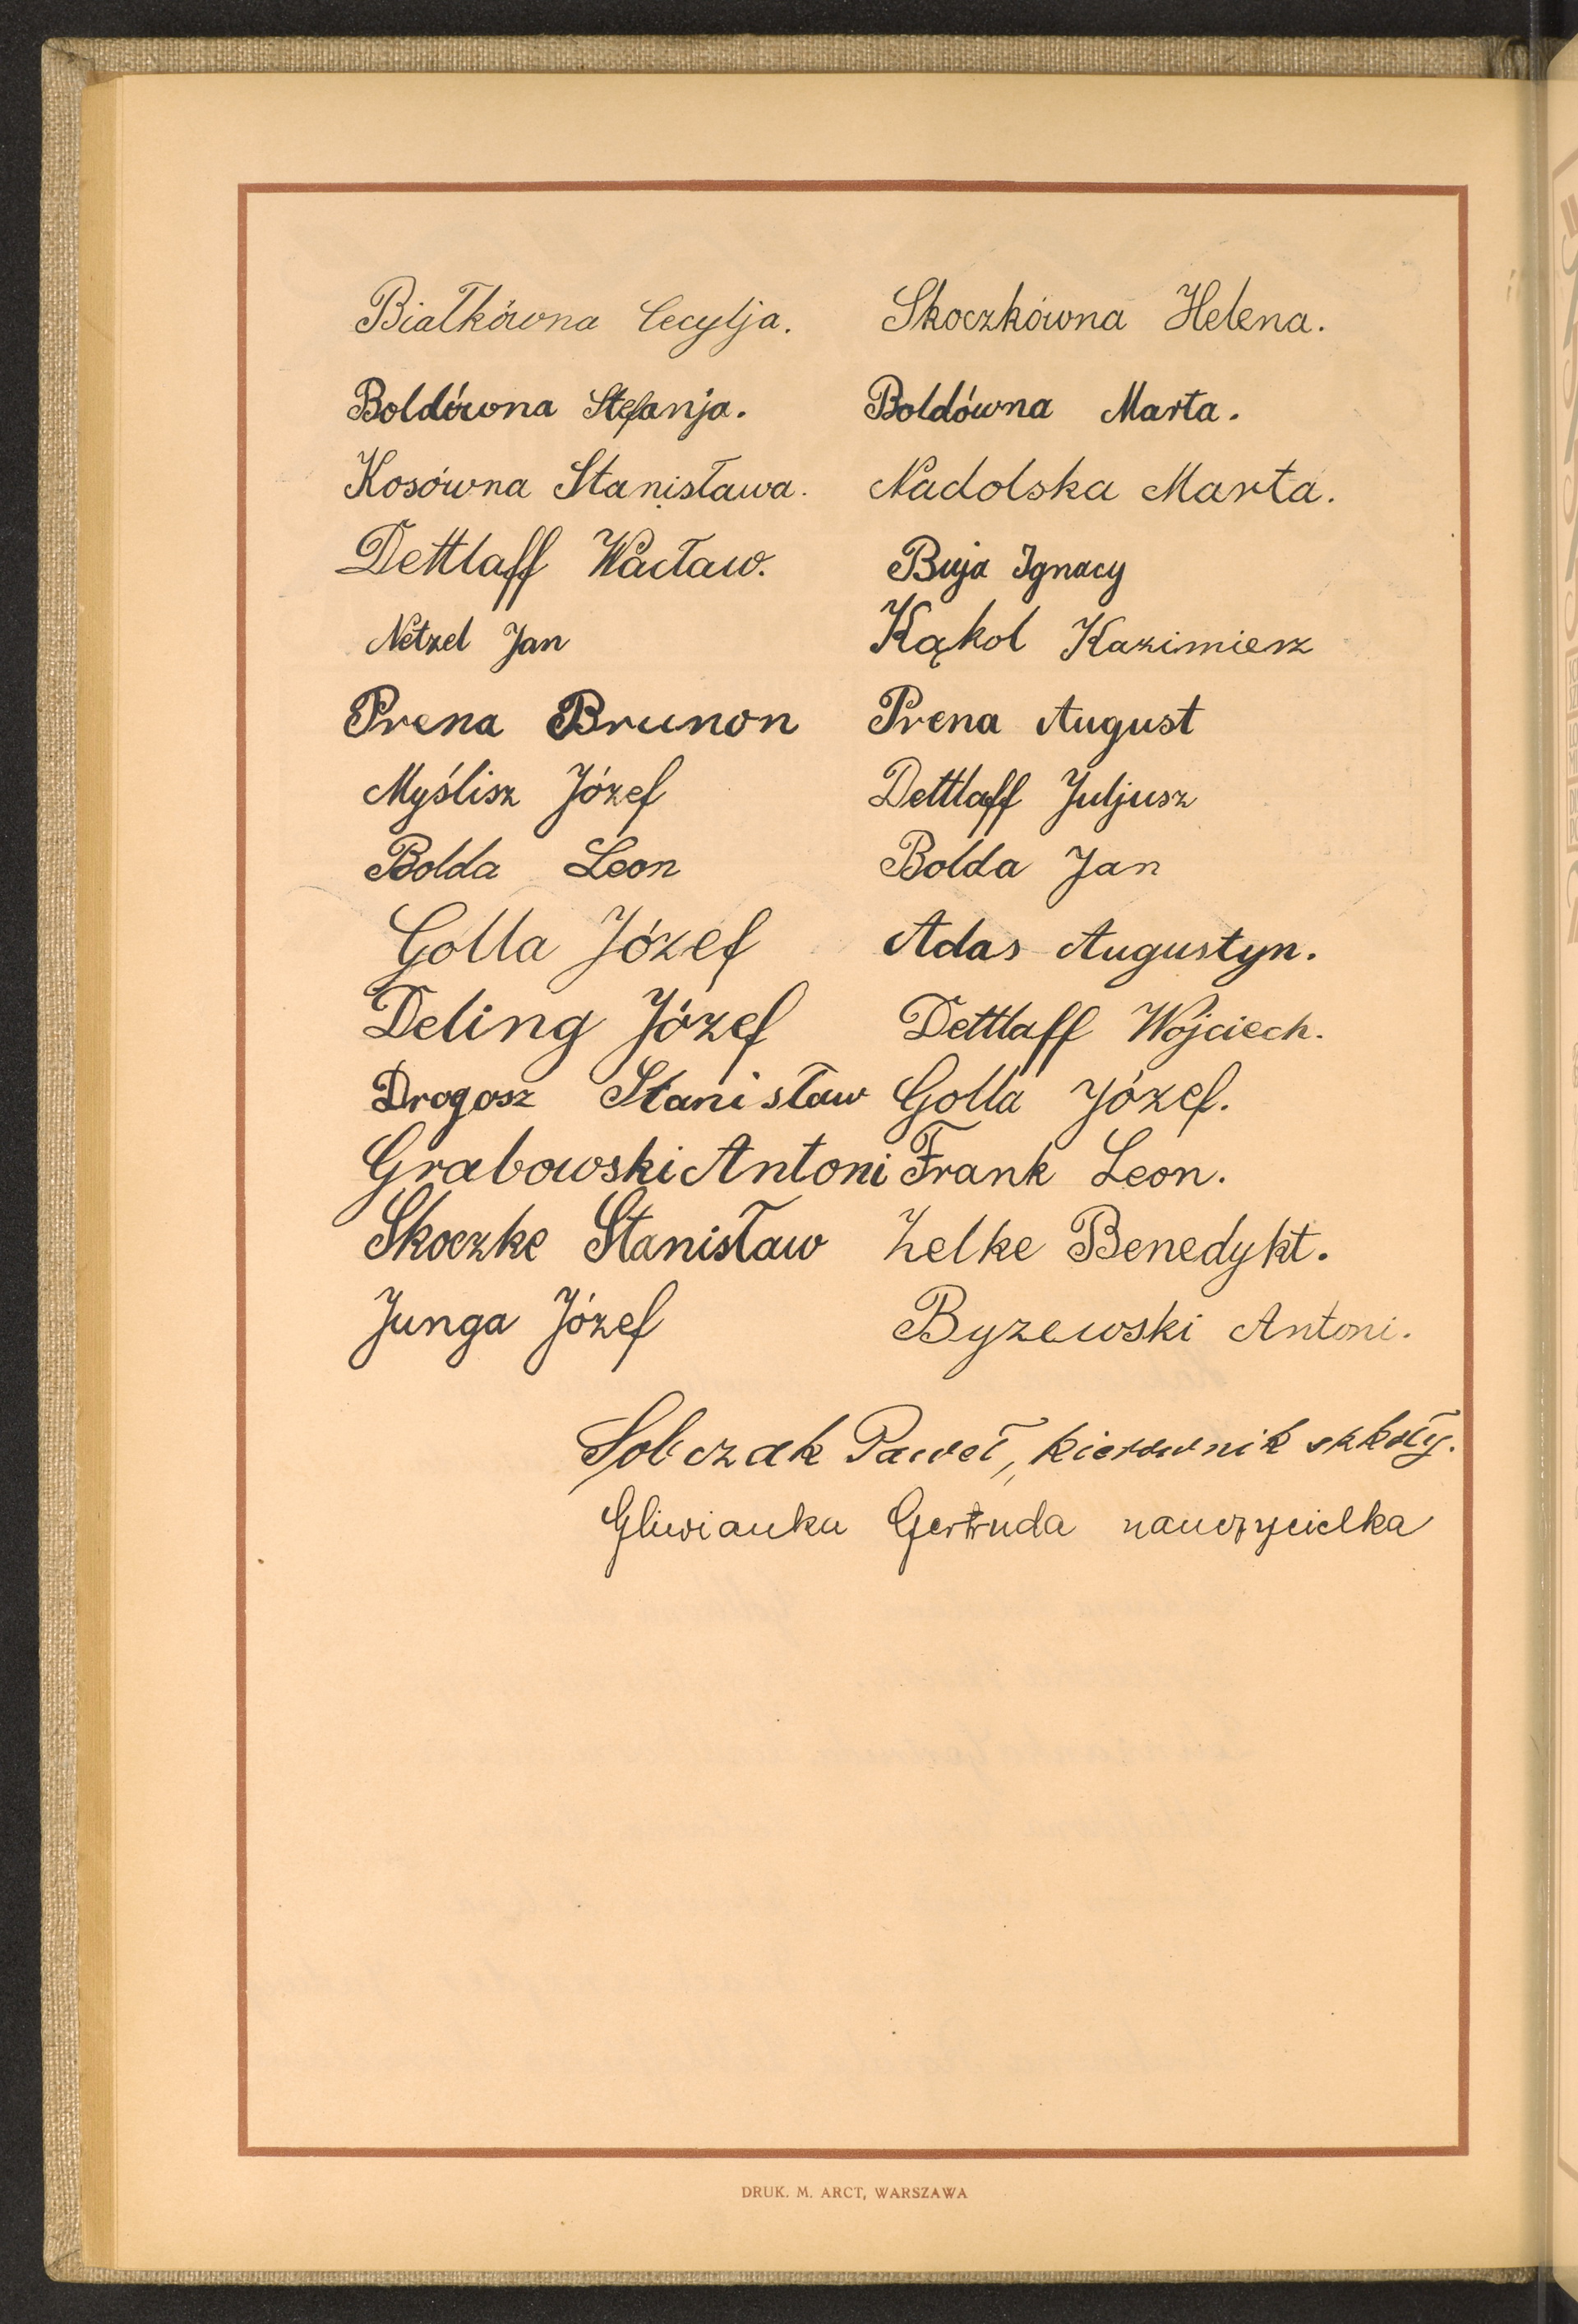 Białkówna Cecylja. Skoczkówna Helena.
Boldówna Stefanja. Boldówna Marta.
Kosówna Stanisława. Nadolska Marta.
Dettlaff Wacław. Buja Ignacy
Netzel Jan Kąkol Kazimierz
Prena Brunon Prena August
Myślisz Józef Dettlaff Juljusz
Bolda Leon Bolda Jan
Golla Józef Adas Augustyn.
Deling Józef Dettlaff Wojciech.
Drogosz Stanisław Golla Józef.
Grabowski Antoni Frank Leon.
Skoczke Stanisław Zelke Benedykt.
Junga Józef Byzewski Antoni.
Sobczak Paweł, kierownik szkoły.
Gliwianka Gertruda nauczycielka
DRUK. M. ARCT, WARSZAWA